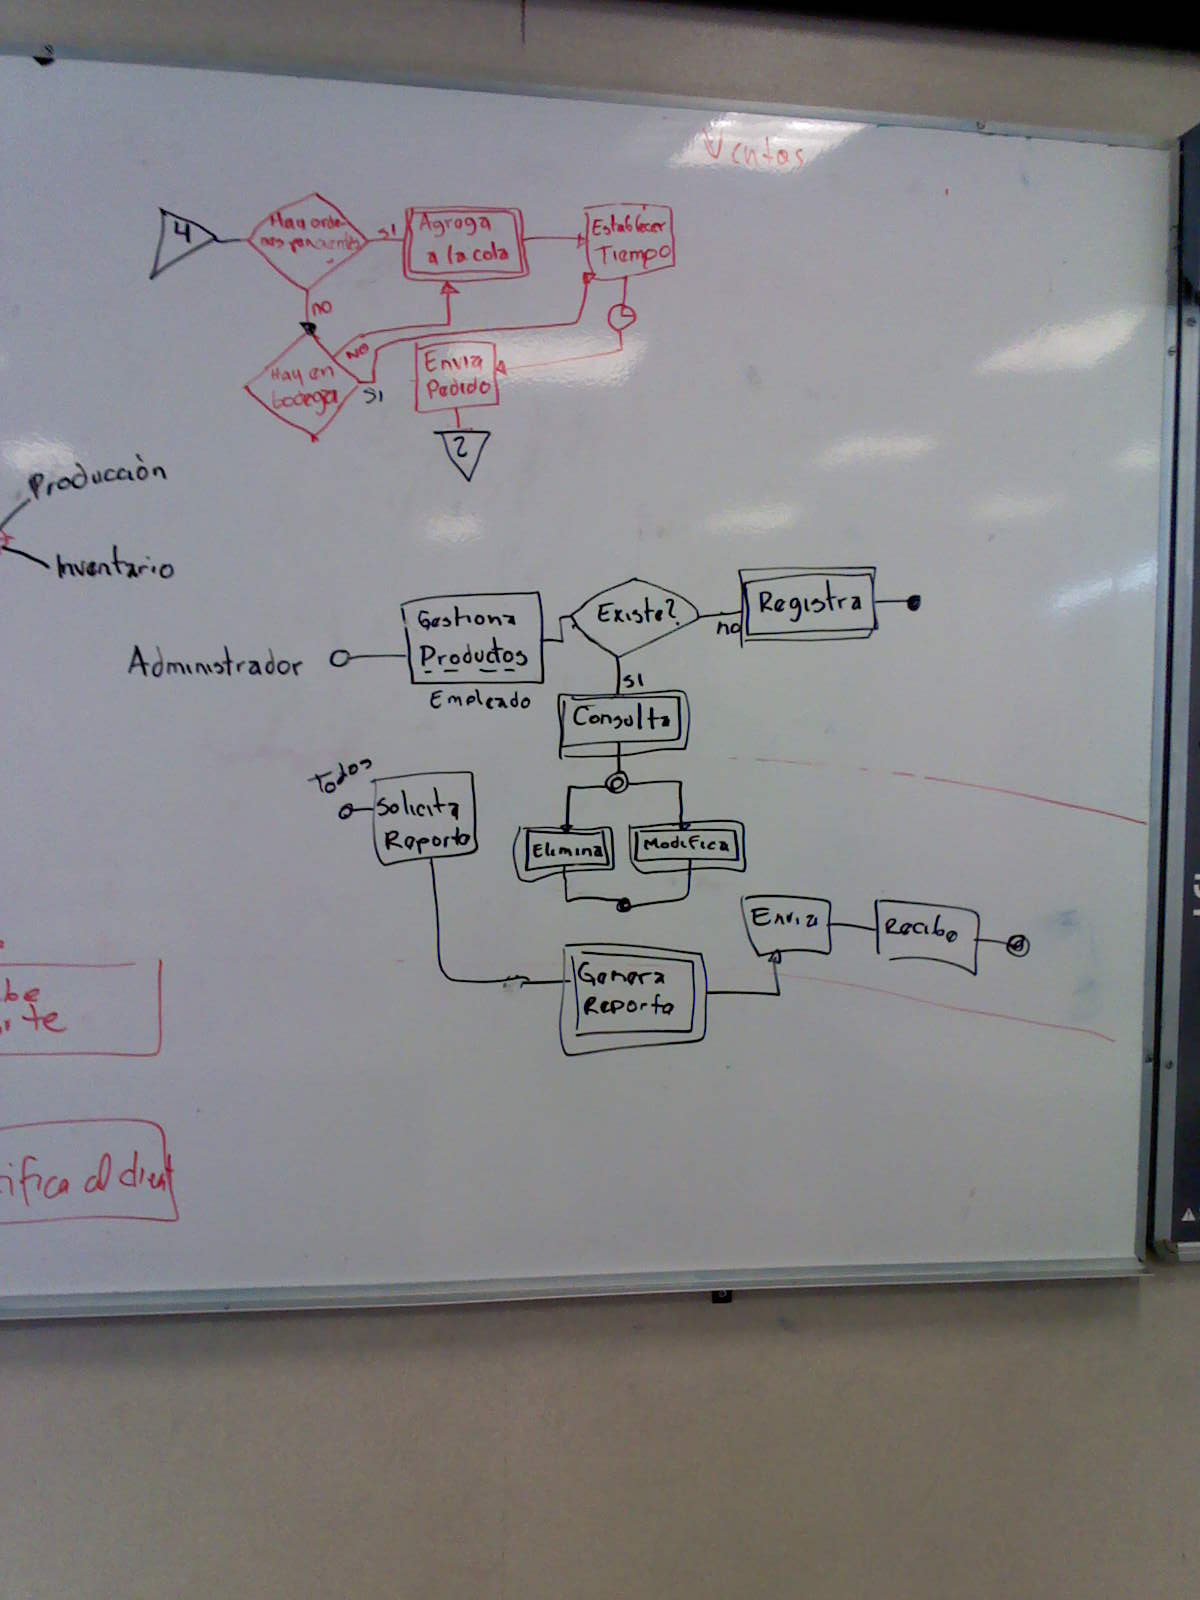 Ventas
4
Hay orde
nes pendientes
SI
Agrega
a la cola
Establecer
Tiempo
no
NO
Hay en
bodega
SI
Envia
Pedido
2
Producciòn
Inventario
Administrador
Gestiona
Productos
Empleado
Existe?
no
Registra
SI
Consulta
Todos
Solicita
Reporte
Elimina
Modifica
Envia
Recibe
Genera
Reporte
be
te
ifica al client